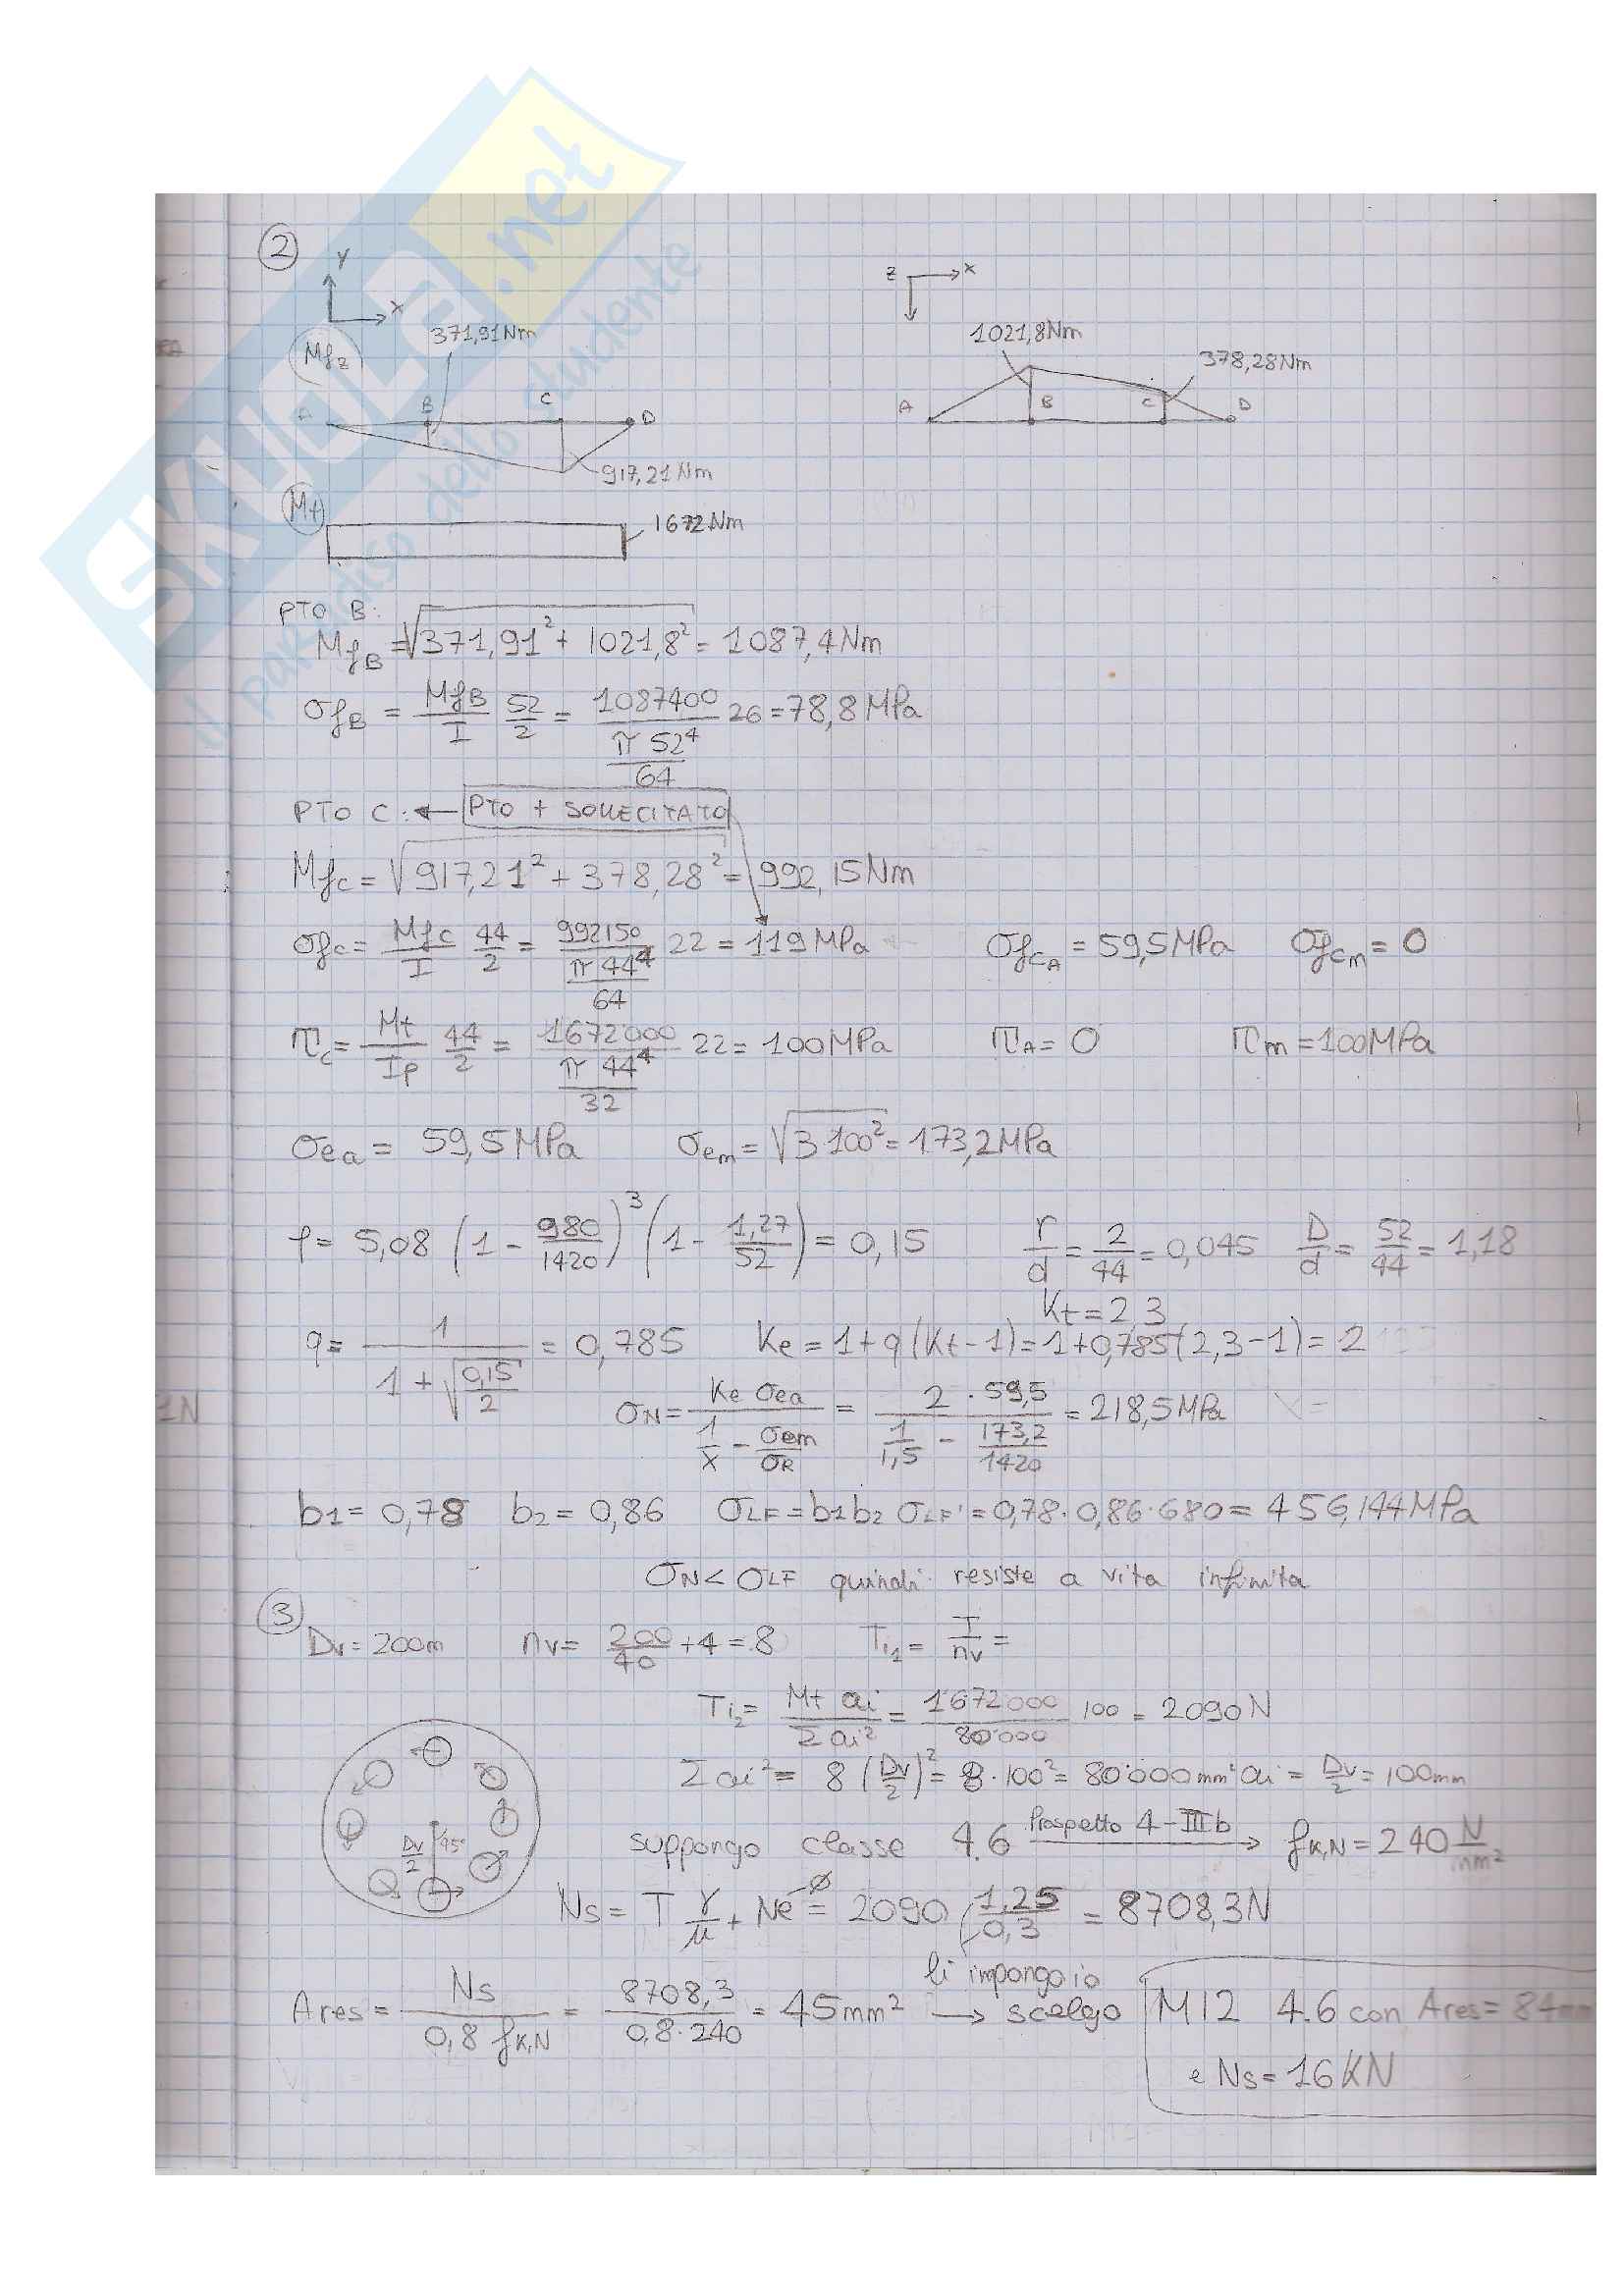 SKUOLA.net
il paradiso dello studente
2
Y
X
Z
X
Mfz
371,91Nm
A
B
C
D
917,21Nm
1021,8Nm
378,28Nm
A
B
C
D
Mt
1672Nm
PTO B:
MfB = √371,91² + 1021,8² = 1087,4Nm
σfB = MfB/I 52/2 = 1087400/(π 52⁴/64) 26 = 78,8MPa
PTO C: ← PTO + SOLLECITATO
Mfc = √917,21² + 378,28² = 992,15Nm
σfc = Mfc/I 44/2 = 992150/(π 44⁴/64) 22 = 119MPa σfcA = 59,5MPa σfcm = 0
τc = Mt/Ip 44/2 = 1672000/(π 44⁴/32) 22 = 100MPa τA = 0 τm = 100MPa
σea = 59,5MPa σem = √3·100² = 173,2MPa
ρ = 5,08 (1 - 980/1420)³ (1 - 1,27/52) = 0,15 r/d = 2/44 = 0,045 D/d = 52/44 = 1,18
Kt = 2,3
q = 1/(1 + √0,15/2) = 0,785 Ke = 1 + q(Kt - 1) = 1 + 0,785(2,3 - 1) = 2
σN = Ke σea/(1/X - σem/σR) = 2 · 59,5/(1/1,5 - 173,2/1420) = 218,5MPa
b1 = 0,78 b2 = 0,86 σLF = b1b2 σLF' = 0,78·0,86·680 = 456,144MPa
σN < σLF quindi resiste a vita infinita
3
Dv = 200m nv = 200/40 + 4 = 8 Ti1 = T/nv =
Ti2 = Mt ai/Σai² = 1672000/80'000 100 = 2090N
Σai² = 8 (Dv/2)² = 8·100² = 80'000mm² ai = Dv/2 = 100mm
Dv/2
45°
suppongo classe 4.6 Prospetto 4-IIIb → fK,N = 240 N/mm²
Ns = T γ/μ + Ne = 2090 (1,25/0,3 = 8708,3N
∅
li impongo io
Ares = Ns/0,8 fK,N = 8708,3/0,8·240 = 45mm² → scelgo M12 4.6 con Ares = 84mm
e Ns = 16KN